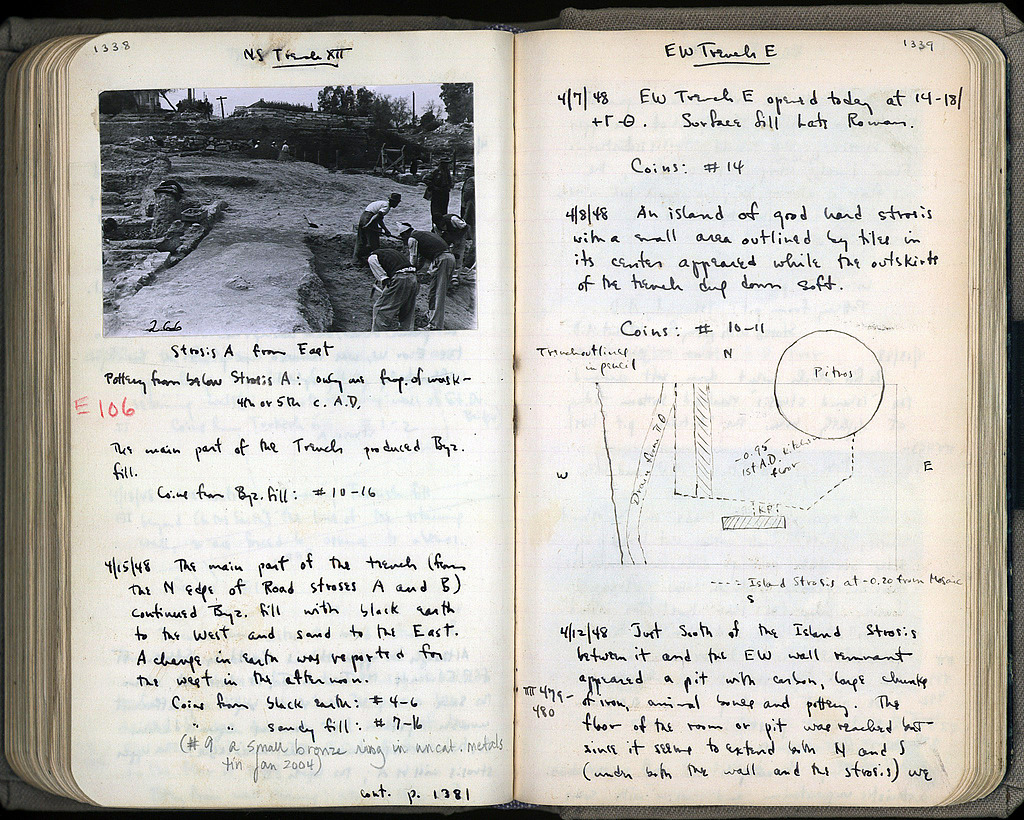 1338
NS Trench XII
266
Strosis A from East
Pottery from below Strosis A: only one frag. of mask-
4th or 5th c. A.D.
E 106
The main part of the Trench produced Byz.
fill.
Coins from Byz. fill: #10-16
4/15/48 The main part of the trench (from
the N edge of Road stroses A and B)
continued Byz. fill with black earth
to the West and sand to the East.
A change in earth was reported for
the west in the afternoon.
Coins from black earth: #4-6
" " sandy fill: #7-16
(#9 a small bronze ring in uncat. metals
tin Jan 2004)
cont. p. 1381
1339
EW Trench E
4/7/48 EW Trench E opened today at 14-18/
+Γ-Θ. Surface fill Late Roman.
Coins: #14
4/8/48 An island of good hard strosis
with a small area outlined by tiles in
its center appeared while the outskirts
of the trench dug down soft.
Coins: # 10-11
Trench outlines
in pencil
N
Pithos
Drain from
-0.95
1st A.D. kitchen
floor
W
E
---- Island Strosis at -0.20 from Mosaic
S
4/12/48 Just South of the Island Strosis
between it and the EW wall remnant
appeared a pit with carbon, large chunks
of iron, animal bones and pottery. The
479-
480
floor of the room or pit was reached but
since it seems to extend both N and S
(under both the wall and the strosis) we